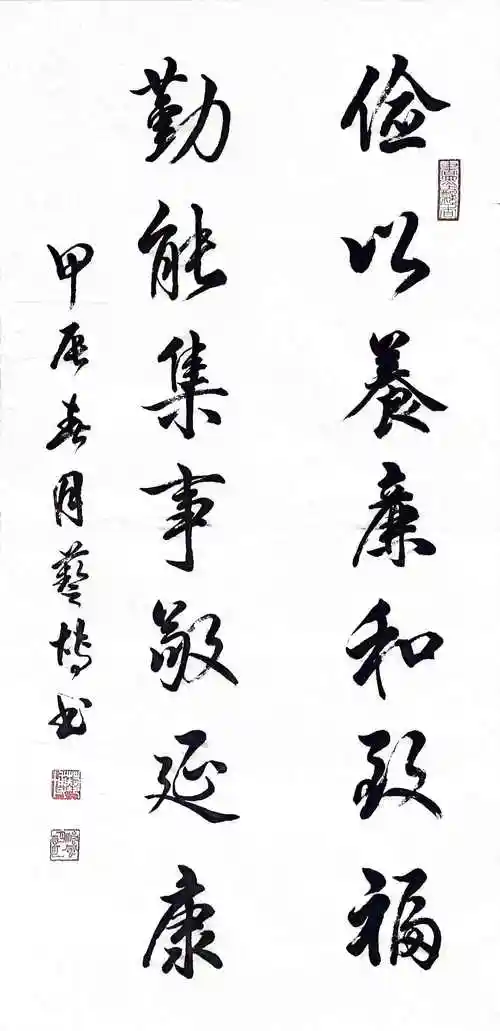 儉以養廉和致福
勤能集事敬延康
甲辰春月藝博书